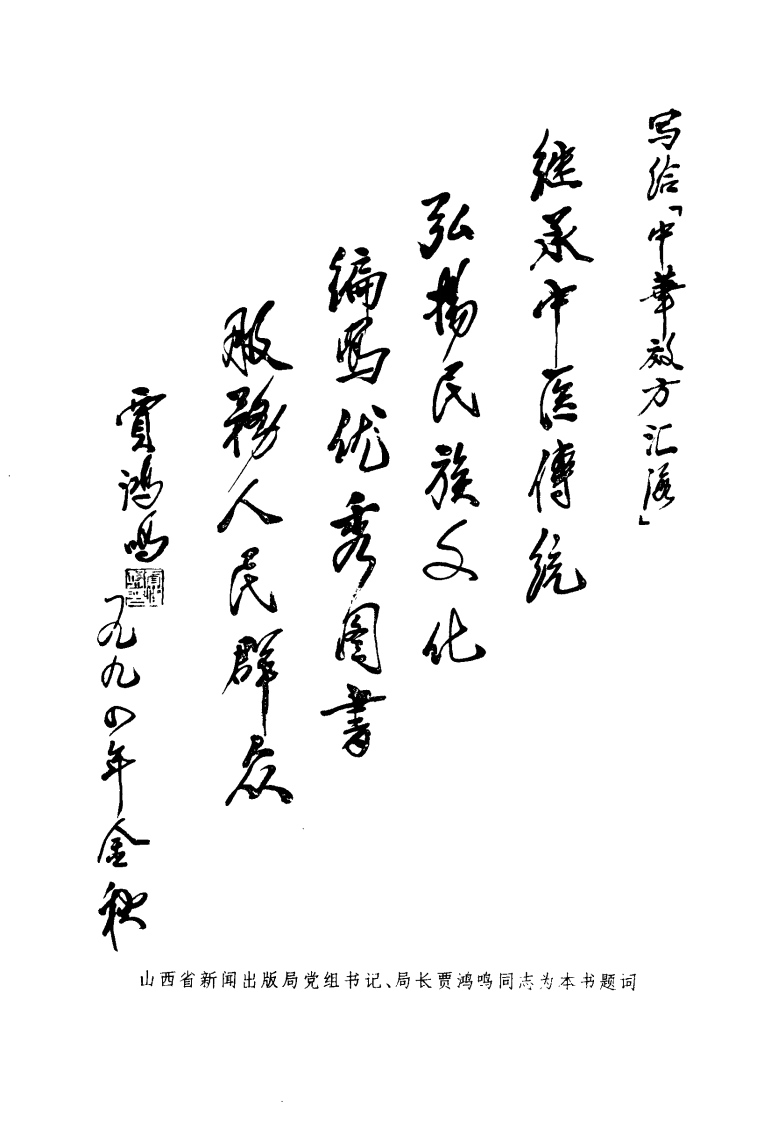 写给「中華效方汇海」
继承中医傳統
弘揚民族文化
编写优秀图書
服務人民群众
賈鸿鸣
一九九〇年金秋
山西省新闻出版局党组书记、局长贾鸿鸣同志为本书题词